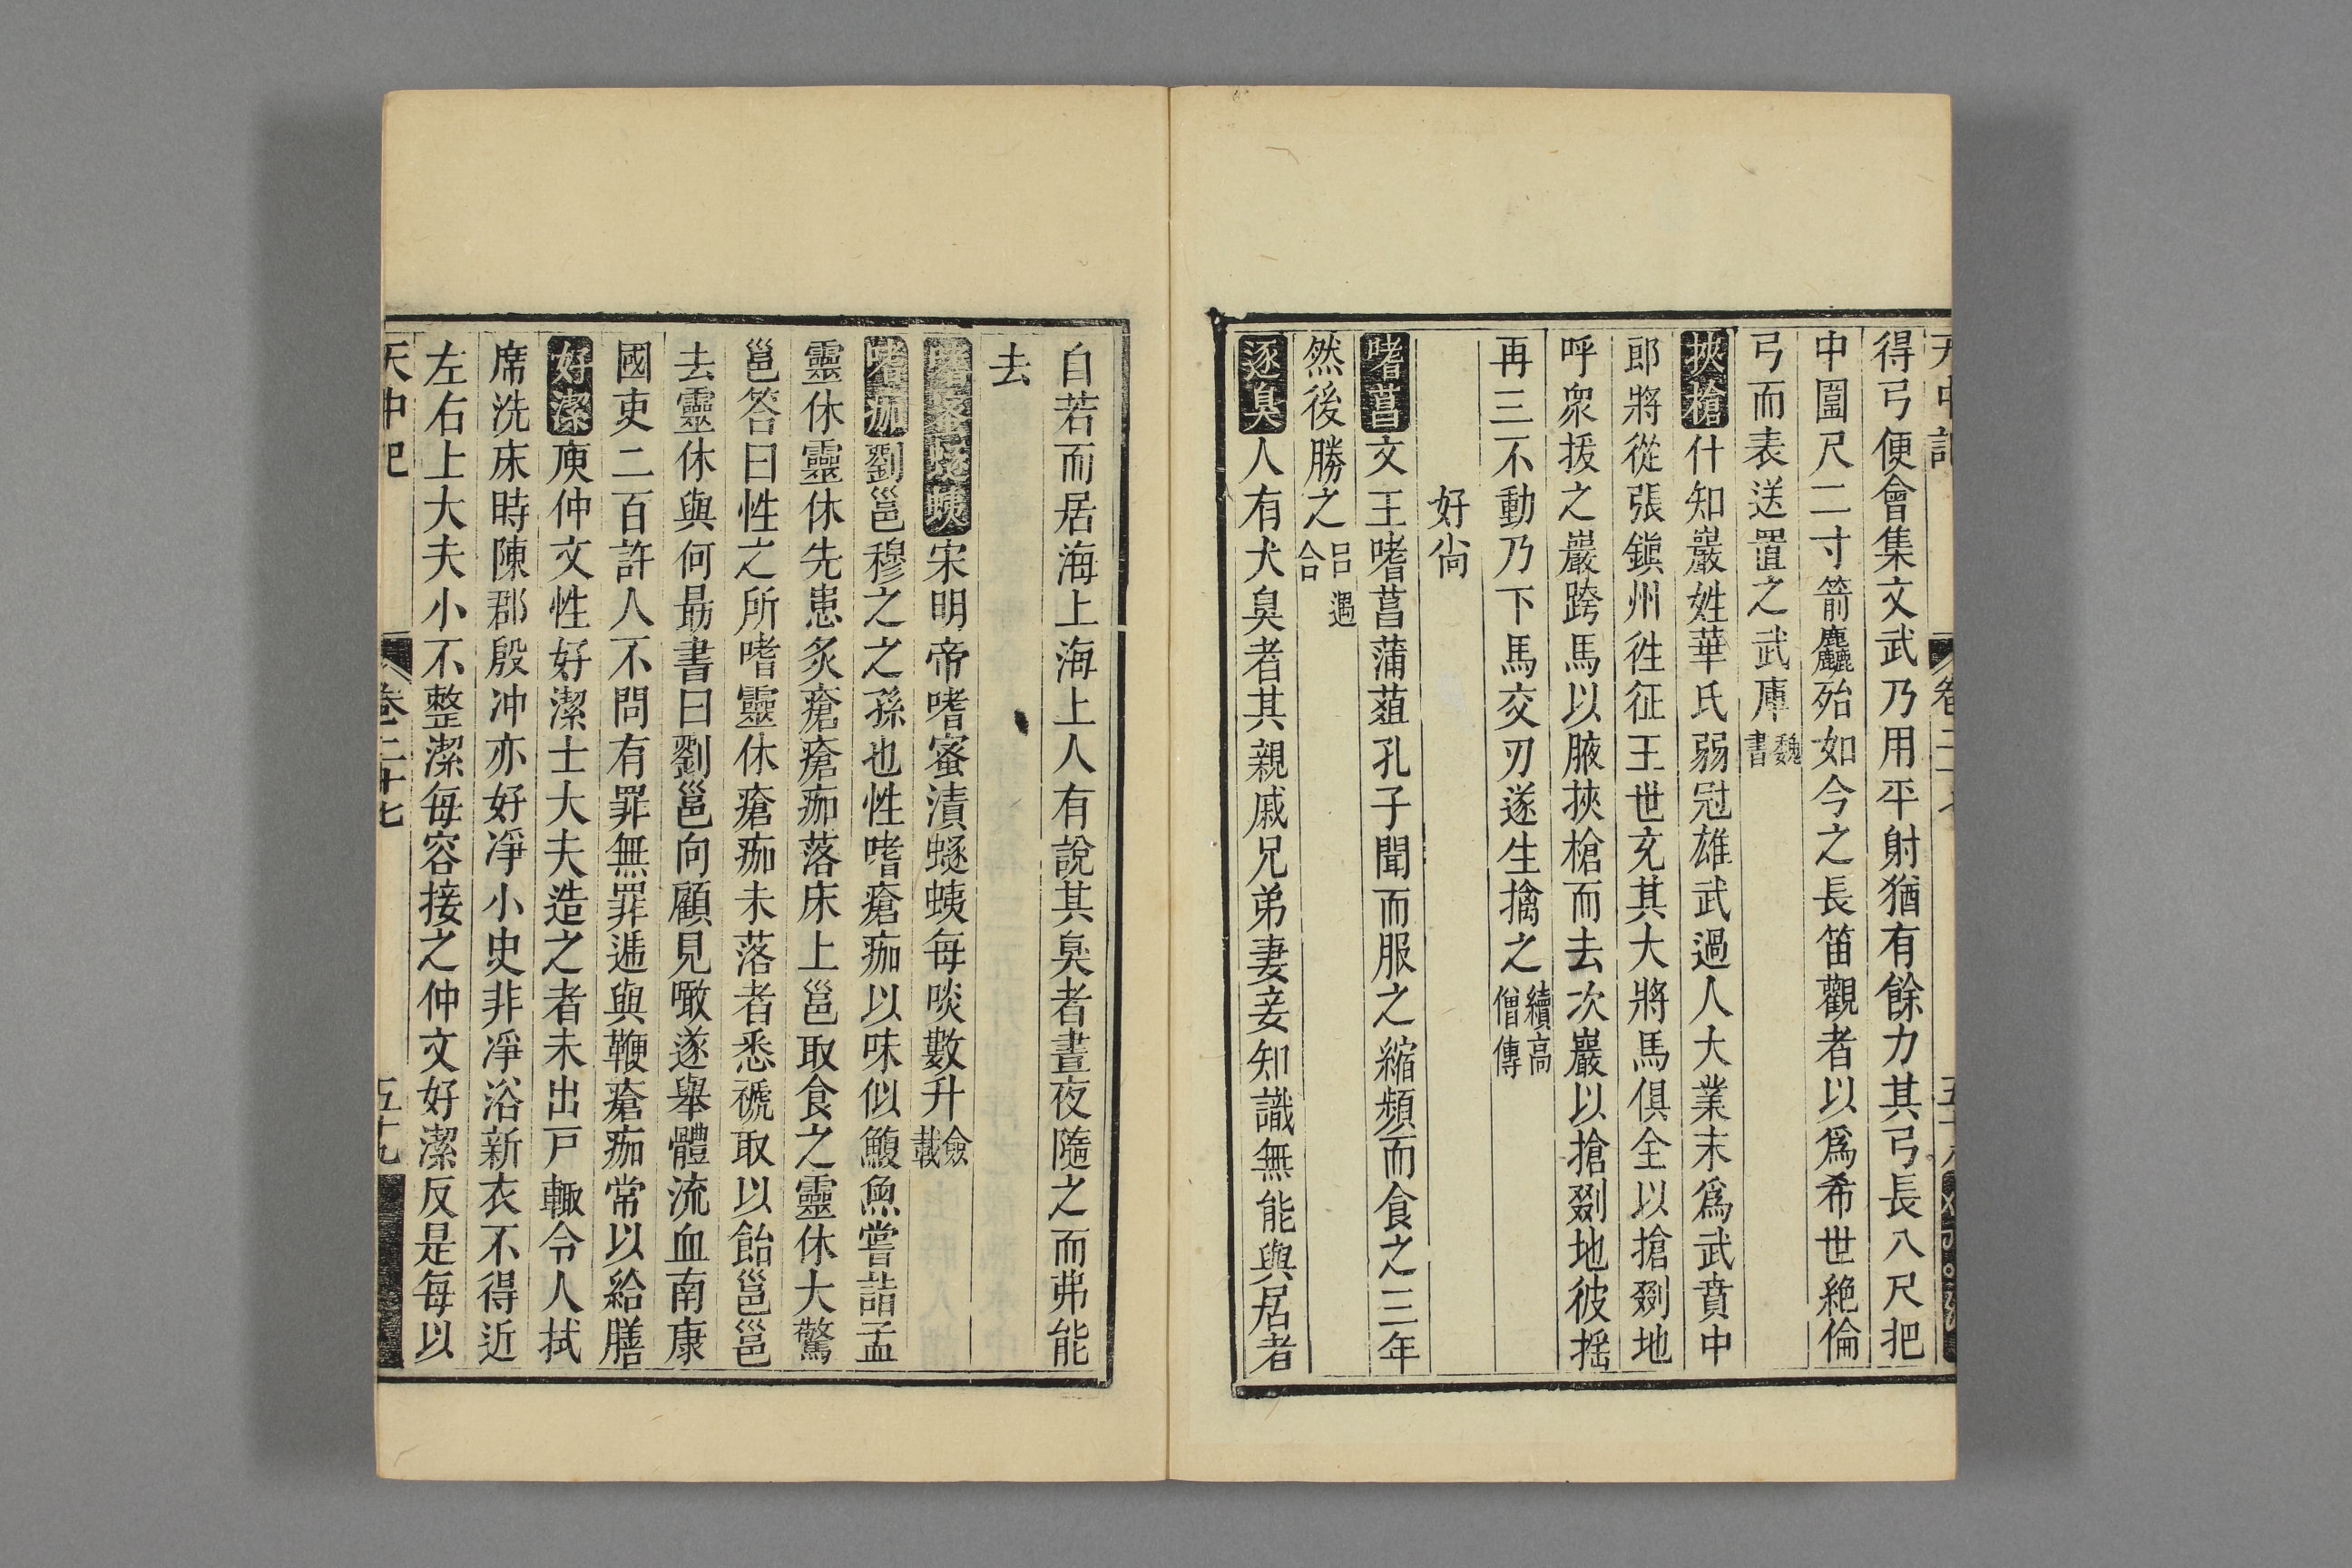 得弓便會集文武乃用平射猶有餘力其弓長八尺把
中圍尺二寸箭麤殆如今之長笛觀者以爲希世絶倫
弓而表送置之武庫魏書
挾槍什知巖姓華氏弱冠雄武過人大業末爲武賁中
郎將從張鎭州徃征王世充其大將馬俱全以搶剟地
呼衆援之巖跨馬以腋挾槍而去次巖以搶剟地彼摇
再三不動乃下馬交刃遂生擒之續高僧傳
好尚
嗜菖文王嗜菖蒲葅孔子聞而服之縮頻而食之三年
然後勝之呂遇合
逐臭人有犬臭者其親戚兄弟妻妾知識無能與居者
自若而居海上海上人有說其臭者晝夜隨之而弗能
去
嗜蜜鱁鮧宋明帝嗜蜜漬鱁鮧每啖數升僉載
嗜痂劉邕穆之之孫也性嗜瘡痂以味似鰒魚嘗詣孟
靈休靈休先患炙瘡瘡痂落床上邕取食之靈休大驚
邕答曰性之所嗜靈休瘡痂未落者悉褫取以飴邕邕
去靈休與何勗書曰劉邕向顧見噉遂舉體流血南康
國吏二百許人不問有罪無罪逓與鞭瘡痂常以給膳
好潔庾仲文性好潔士大夫造之者未出戸輙令人拭
席洗床時陳郡殷冲亦好淨小史非淨浴新衣不得近
左右上大夫小不整潔每容接之仲文好潔反是每以
天中記 卷二十七 五十九